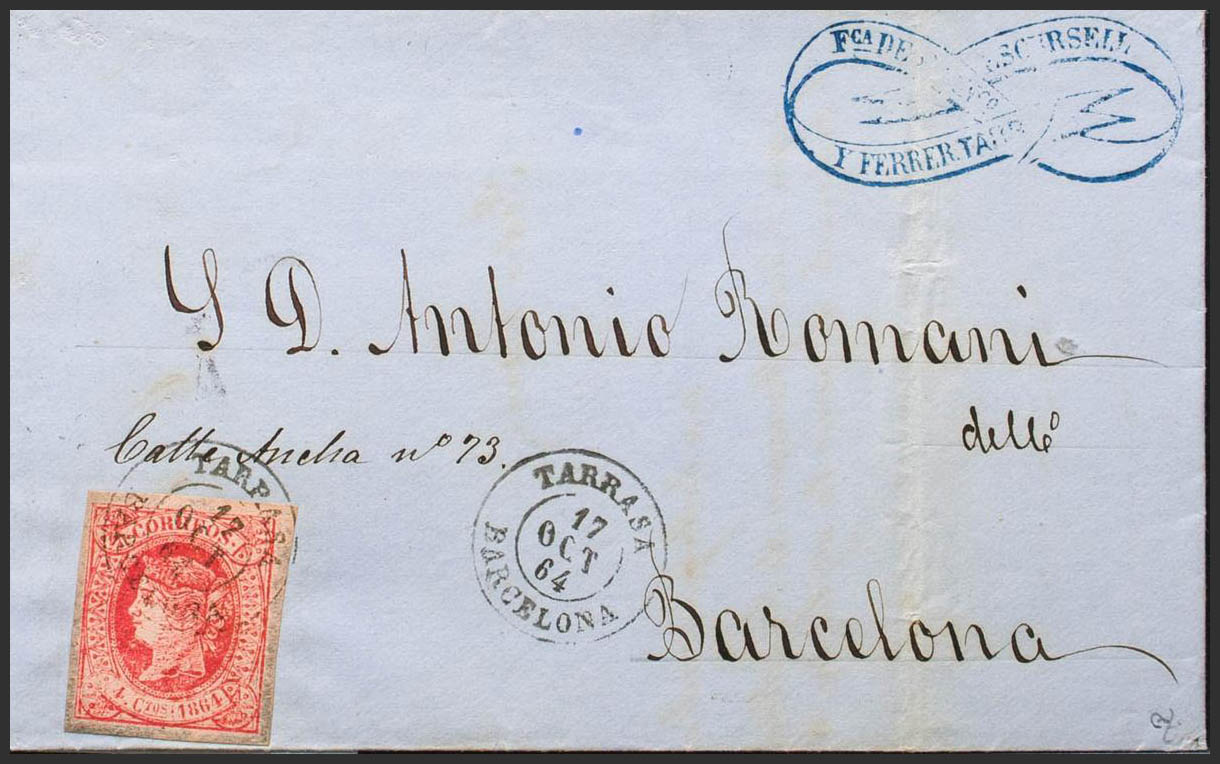 FCA DE ESCURSELL
Y FERRER. TARR
S D. Antonio Romani
Calle Ancha nº 73.
TARRASA
17
OCT
64
BARCELONA
TARRASA
17
OCT
64
BARCELONA
CORREOS
4. CTOS. 1864
Barcelona